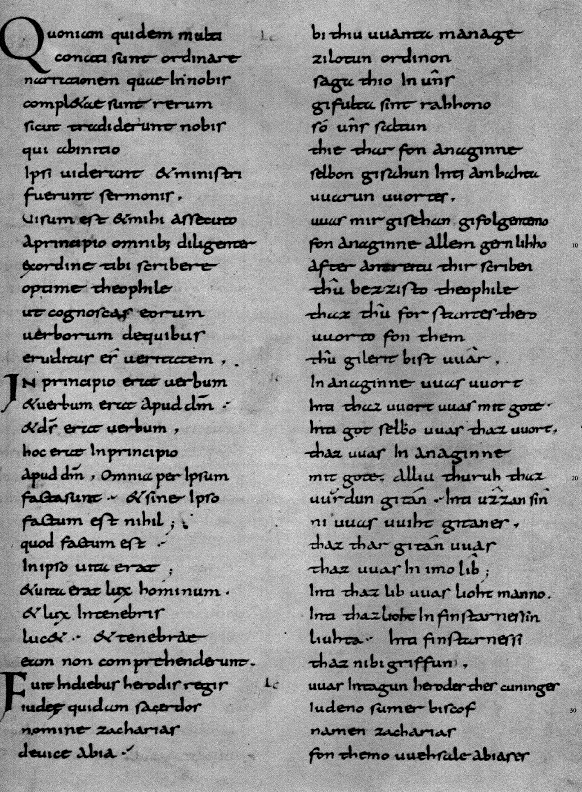 Quoniam quidem multi
conati sunt ordinare
narrationem quae In nobis
complętae sunt rerum
sicut tradiderunt nobis
qui abinitio
Ipsi uiderunt & ministri
fuerunt sermonis.
Uisum est & mihi assecuto
Aprincipio omnib; diligenter
exordine tibi scribere
optime theophile
ut cognoscas eorum
uerborum dequibus
eruditus es ueritatem.
IN principio erat uerbum
& uerbum erat apud dm̄
& dś erat uerbum,
hoc erat Inprincipio
apud dm̄, Omnia per Ipsum
facta sunt & sine Ipso
factum est nihil;
quod factum est
In ipso uita erat;
& uita erat lux hominum.
& lux In tenebris
luc& & tenebrae
eam non comprehenderunt.
Fuit In diebus herodis regis
iudeę quidam sacerdos
nomine zacharias
deuice abia
Lc
bi thiu uuanta manage
zilotun ordinon
saga thio In uns
gifulta sint rahhono
só uns saltun
thie thar fon anaginne
selbon gisahun Inti ambahta
uuarun uuortes.
uuas mir gisehan gifolgentemo
fon anaginne allem gernlihho
after antreitu thir scriben
thû bezzisto theophile
thaz thû forstantes thero
uuorto fon them
thû gilerit bist uuâr.
In anaginne uuas uuort
Inti thaz uuort uuas mit gote.
Inti got selbo uuas thaz uuort.
thaz uuas In anaginne
mit gote. alliu thuruh thaz
uuvrdun gitân. Inti ûzzan sîn
ni uuas uuiht gitanes.
thaz thar gitân uuas
thaz uuas In imo lîb;
Inti thaz lib uuas lioht manno.
Inti thaz lioht In finstarnessin
liuhta. Inti finstarnessi
thaz nibigriffun.
Lc
uuas In tagun herodes thes cuninges
Iudeno sumer biscof
namen zacharias
fon themo uuehsale abiases
10
20
30